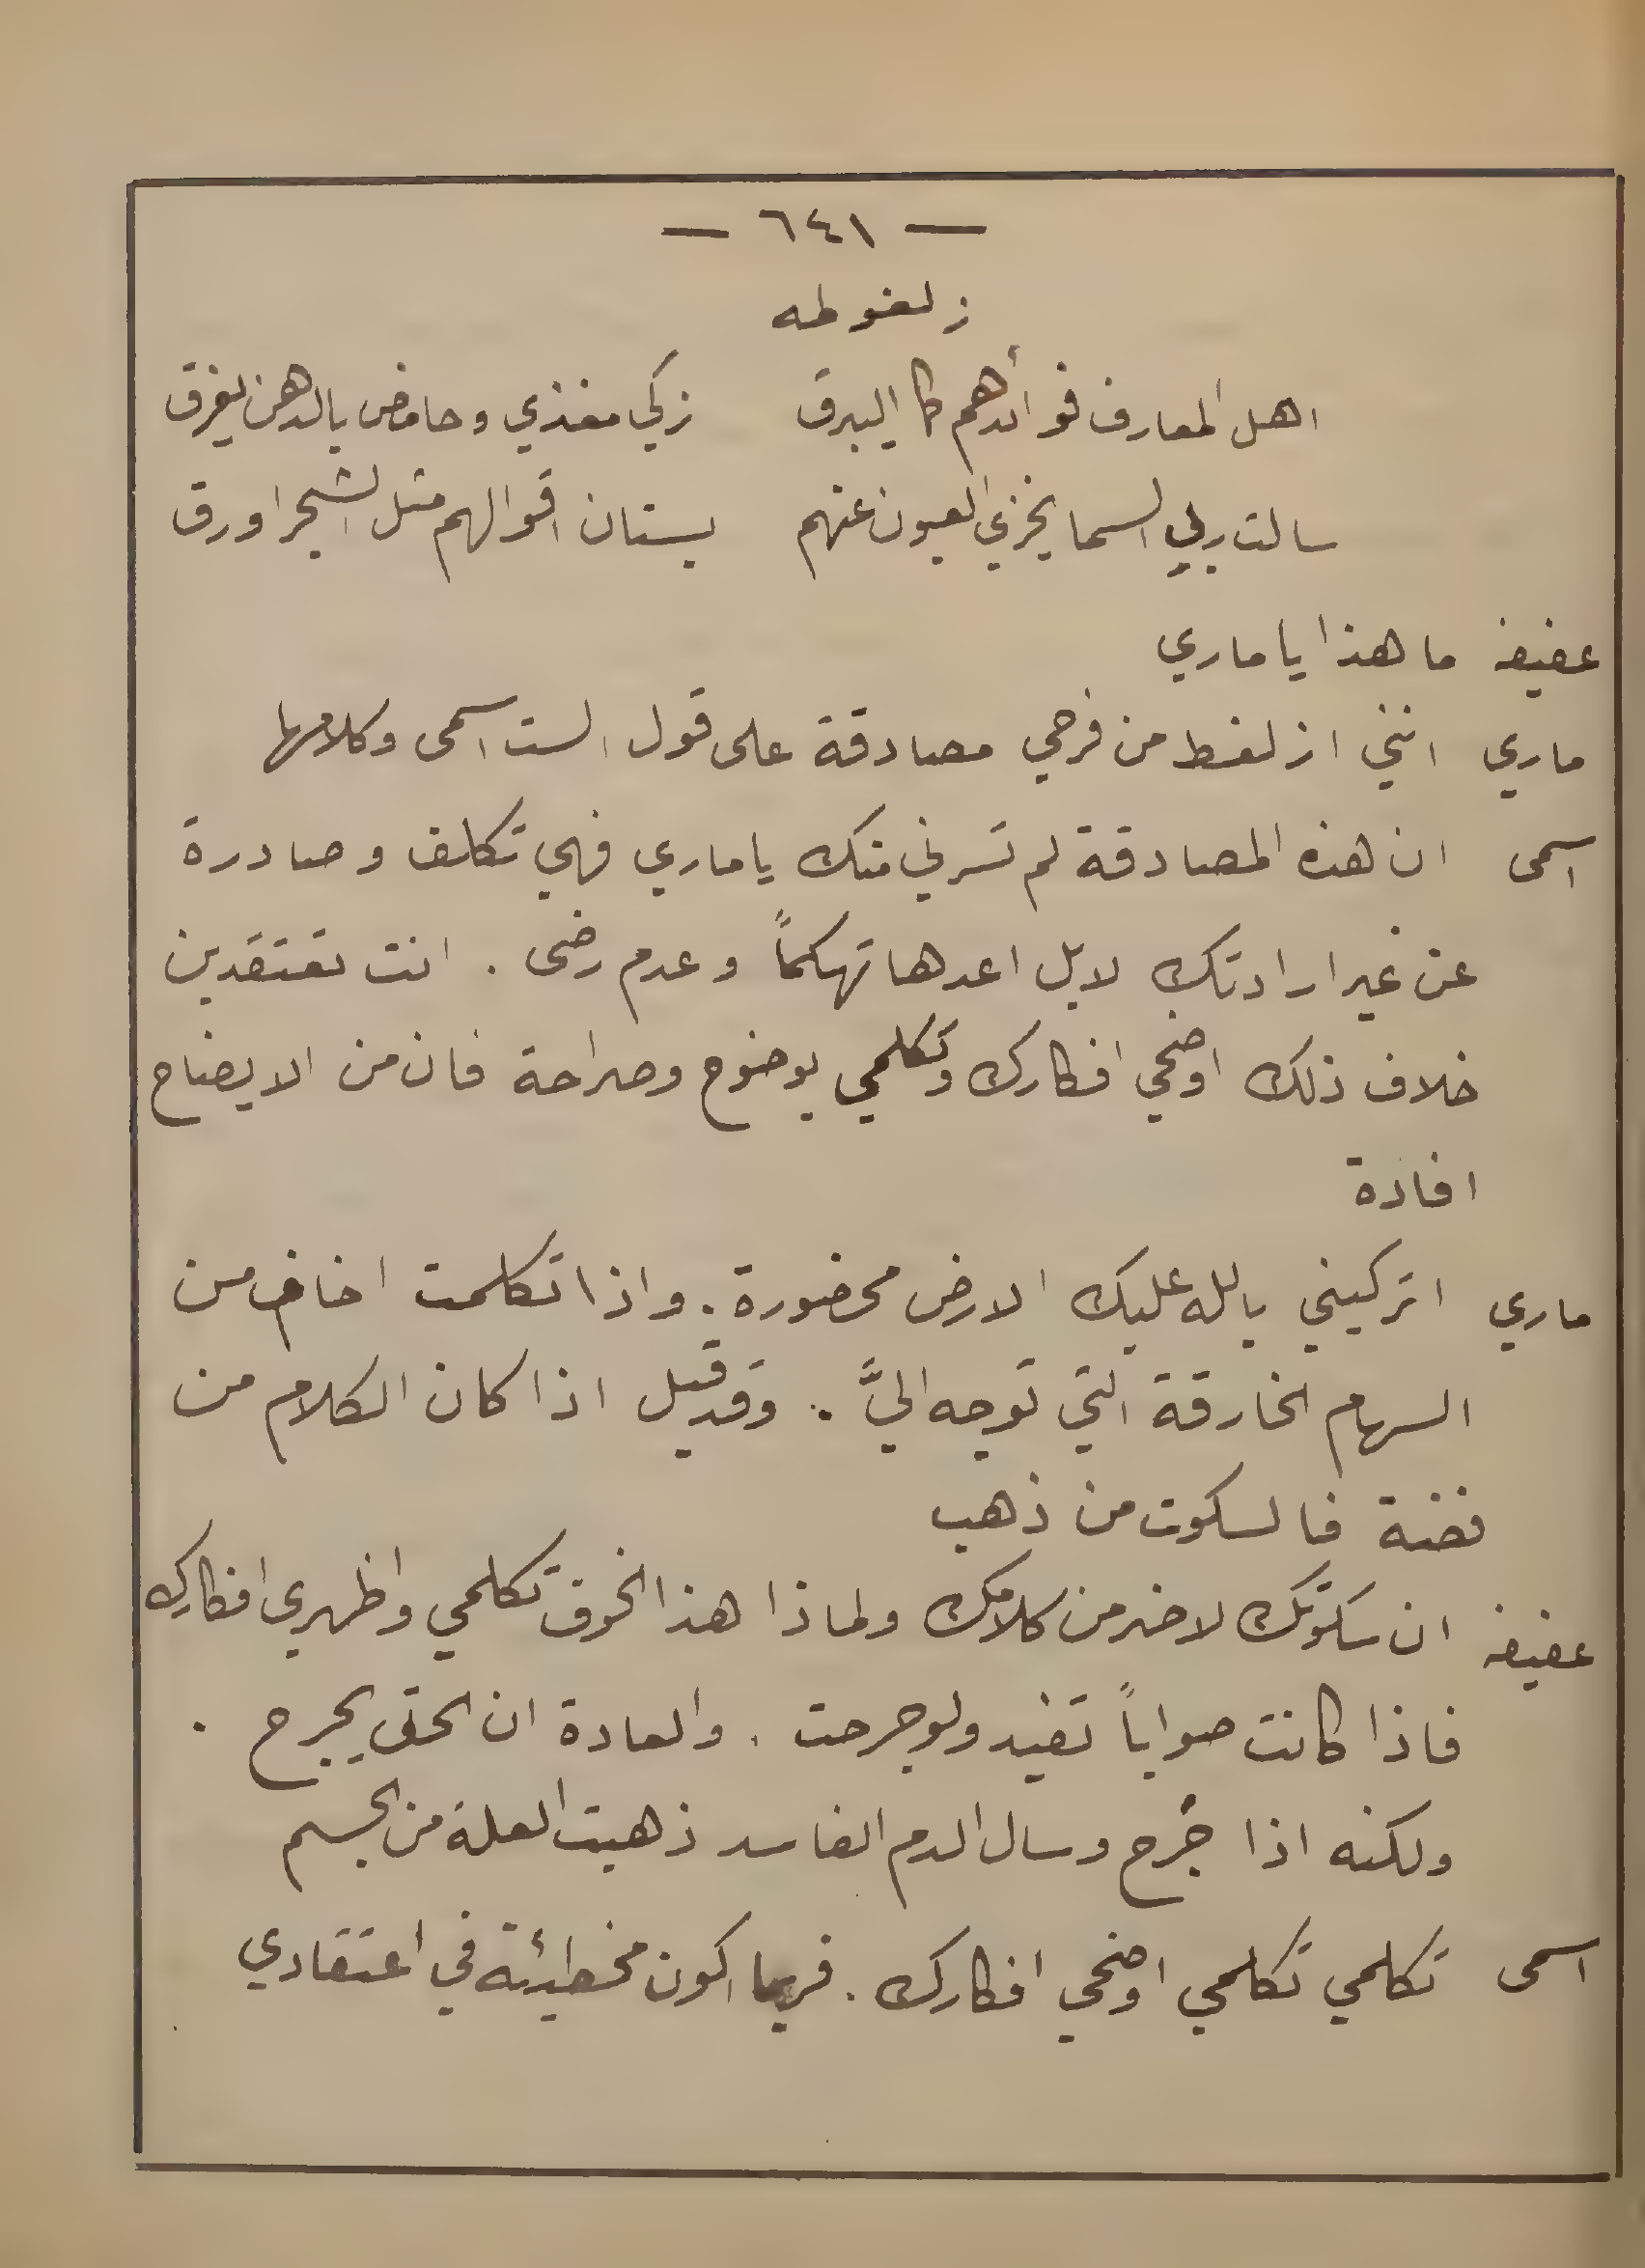 — ٦٤١ —
زلغوطه
اهل المعارف فوائدهم كا اليبرق زكي مغذي وحامض بالدهن يغرق
سالت ربي السما يخزي العيون عنهم بستان اقوالهم مثل الشجر اورق
عفيفه ما هذا يا ماري
ماري انني ازلغط من فرحي مصادقة على قول الست اسمى وكلامها
اسمى ان هذه المصادقة لم تسرني منك يا ماري فهي تكلف وصادرة
عن غير ارادتك لا بل اعدها تهكماً وعدم رضى . انت تعتقدين
خلاف ذلك اوضحي افكارك وتكلمي بوضوح وصراحة فان من الايضاح
افادة
ماري اتركيني بالله عليك الارض محضورة . واذا تكلمت اخاف من
السهام الخارقة التي توجه اليَّ .. وقد قيل اذا كان الكلام من
فضة فالسكوت من ذهب
عفيفه ان سكوتك لاضر من كلامك ولماذا هذا الخوف تكلمي واظهري افكارك
فاذا كانت صواباً تفيد ولو جرحت . والعادة ان الحق يجرح .
ولكنه اذا جُرح وسال الدم الفاسد ذهبت العلة من الجسم
اسمى تكلمي تكلمي اوضحي افكارك . فربما اكون مخطيئة في اعتقادي